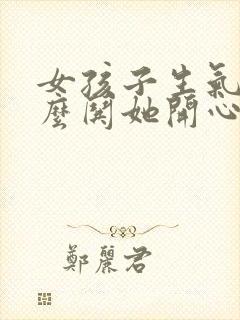 女孩子生氣
麼関她開心
鄭麗君